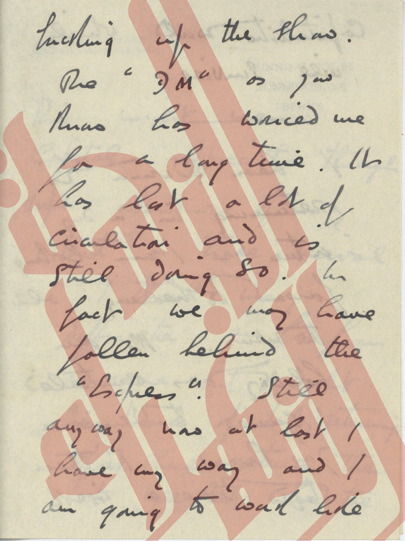 hushing up the show.
The "DM" as you
know has worried me
for a long time. It
has lost a lot of
circulation and is
still doing so. In
fact we may have
fallen behind the
"Express". Still
anyway now at last I
have my way and I
am going to work like